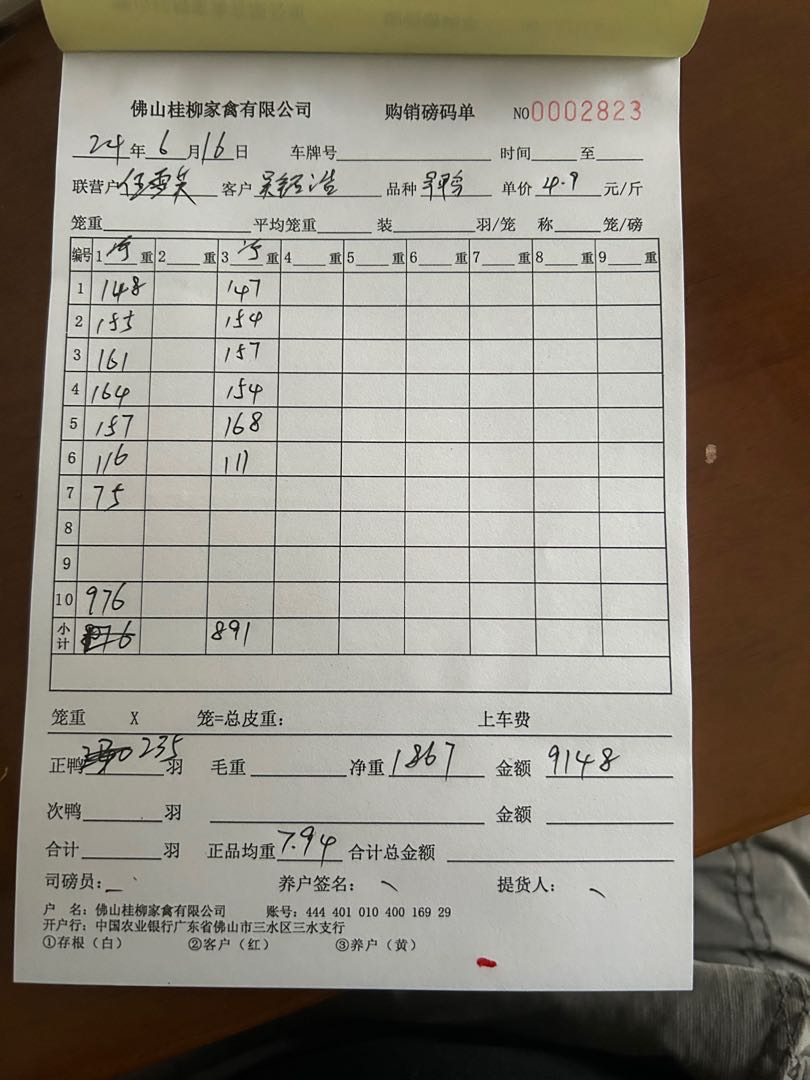 佛山桂柳家禽有限公司 购销磅码单 NO0002823
24年6月16日 车牌号 时间 至
联营户 客户 品种 单价 4.9 元/斤
笼重 平均笼重 装 羽/笼 称 笼/磅
编号 1 净 重 2 重 3 净 重 4 重 5 重 6 重 7 重 8 重 9 重
1 148 147
2 155 154
3 161 157
4 164 154
5 157 168
6 116 111
7 75
8
9
10 976
小计 891
笼重 X 笼=总皮重: 上车费
正鸭 235 羽 毛重 净重 1867 金额 9148
次鸭 羽 金额
合计 羽 正品均重 7.94 合计总金额
司磅员: 养户签名: 提货人:
户 名: 佛山桂柳家禽有限公司 账号: 444 401 010 400 169 29
开户行: 中国农业银行广东省佛山市三水区三水支行
①存根（白） ②客户（红） ③养户（黄）